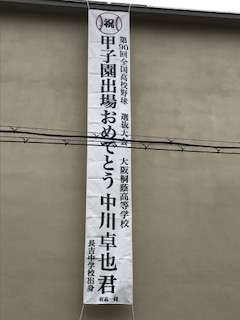 祝
第90回全国高校野球 選抜大会 大阪桐蔭高等学校
甲子園出場おめでとう 中川卓也君
長吉中学校出身